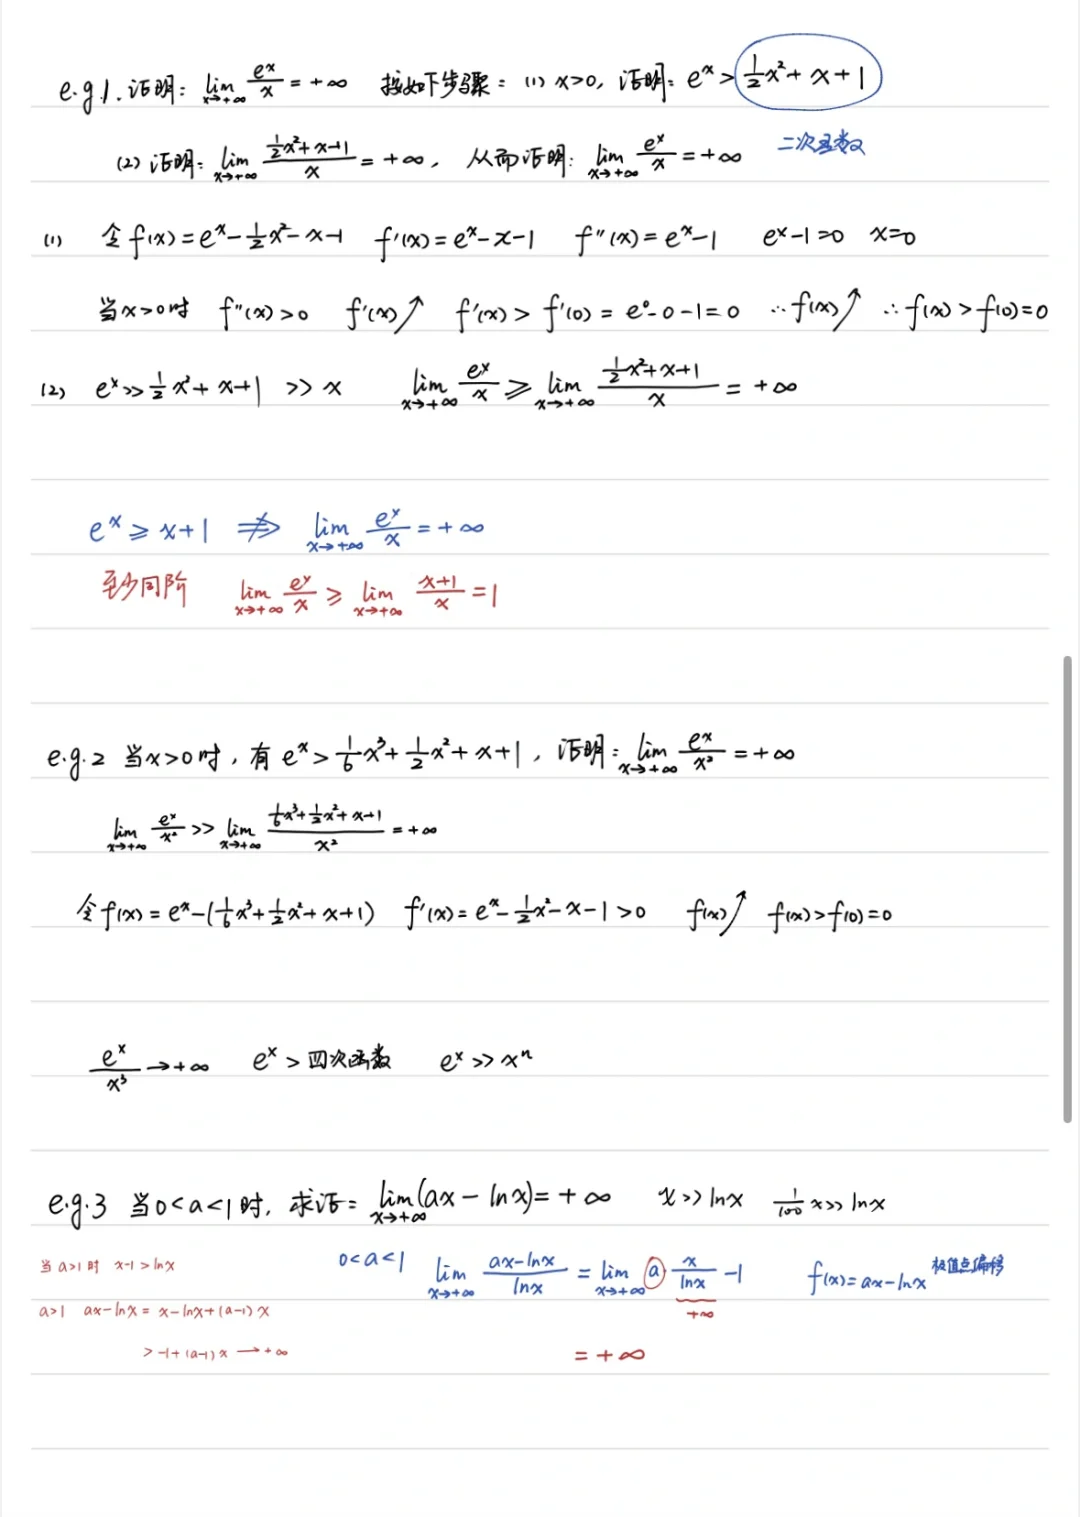 e.g.1. 证明: lim_{x→+∞} e^x/x = +∞ 按如下步骤: (1) x>0, 证明: e^x > 1/2x²+x+1
(2) 证明: lim_{x→+∞} (1/2x²+x+1)/x = +∞, 从而证明: lim_{x→+∞} e^x/x = +∞ 二次函数
(1) 令f(x)=e^x-1/2x²-x-1 f'(x)=e^x-x-1 f''(x)=e^x-1 e^x-1=0 x=0
当x>0时 f''(x)>0 f'(x)↗ f'(x)>f'(0)=e^0-0-1=0 ∴f(x)↗ ∴f(x)>f(0)=0
(2) e^x>>1/2x²+x+1 >>x lim_{x→+∞} e^x/x ≥ lim_{x→+∞} (1/2x²+x+1)/x = +∞
e^x≥x+1 ⇏ lim_{x→+∞} e^x/x = +∞
至少同阶 lim_{x→+∞} e^x/x ≥ lim_{x→+∞} (x+1)/x = 1
e.g.2 当x>0时, 有e^x>1/6x³+1/2x²+x+1, 证明: lim_{x→+∞} e^x/x² = +∞
lim_{x→+∞} e^x/x² >> lim_{x→+∞} (1/6x³+1/2x²+x+1)/x² = +∞
令f(x)=e^x-(1/6x³+1/2x²+x+1) f'(x)=e^x-1/2x²-x-1>0 f(x)↗ f(x)>f(0)=0
e^x/x³→+∞ e^x>四次函数 e^x>>x^n
e.g.3 当0<a<1时, 求证: lim_{x→+∞}(ax-lnx)=+∞ x>>lnx 1/100x>>lnx
当a>1时 x-1>lnx 0<a<1 lim_{x→+∞} (ax-lnx)/lnx = lim_{x→+∞} a·x/lnx-1 f(x)=ax-lnx 极值点偏移
a>1 ax-lnx=x-lnx+(a-1)x +∞
>-1+(a-1)x→+∞ =+∞